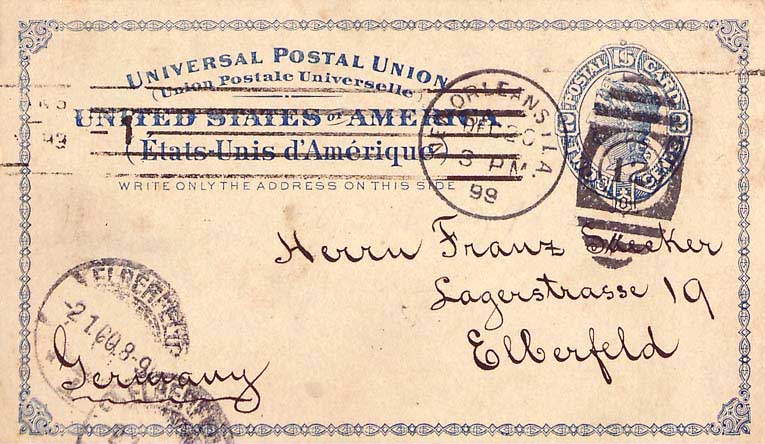 UNIVERSAL POSTAL UNION
(Union Postale Universelle)
UNITED STATES OF AMERICA
(États-Unis d'Amérique)
WRITE ONLY THE ADDRESS ON THIS SIDE
POSTAL U.S. CARD
NEW ORLEANS LA.
DEC 20
3 PM
99
12
Herrn Franz Saeker
Lagerstrasse 19
Elberfeld
Germany
ELBERFELD
-2 1 00 8-9
ELBERF